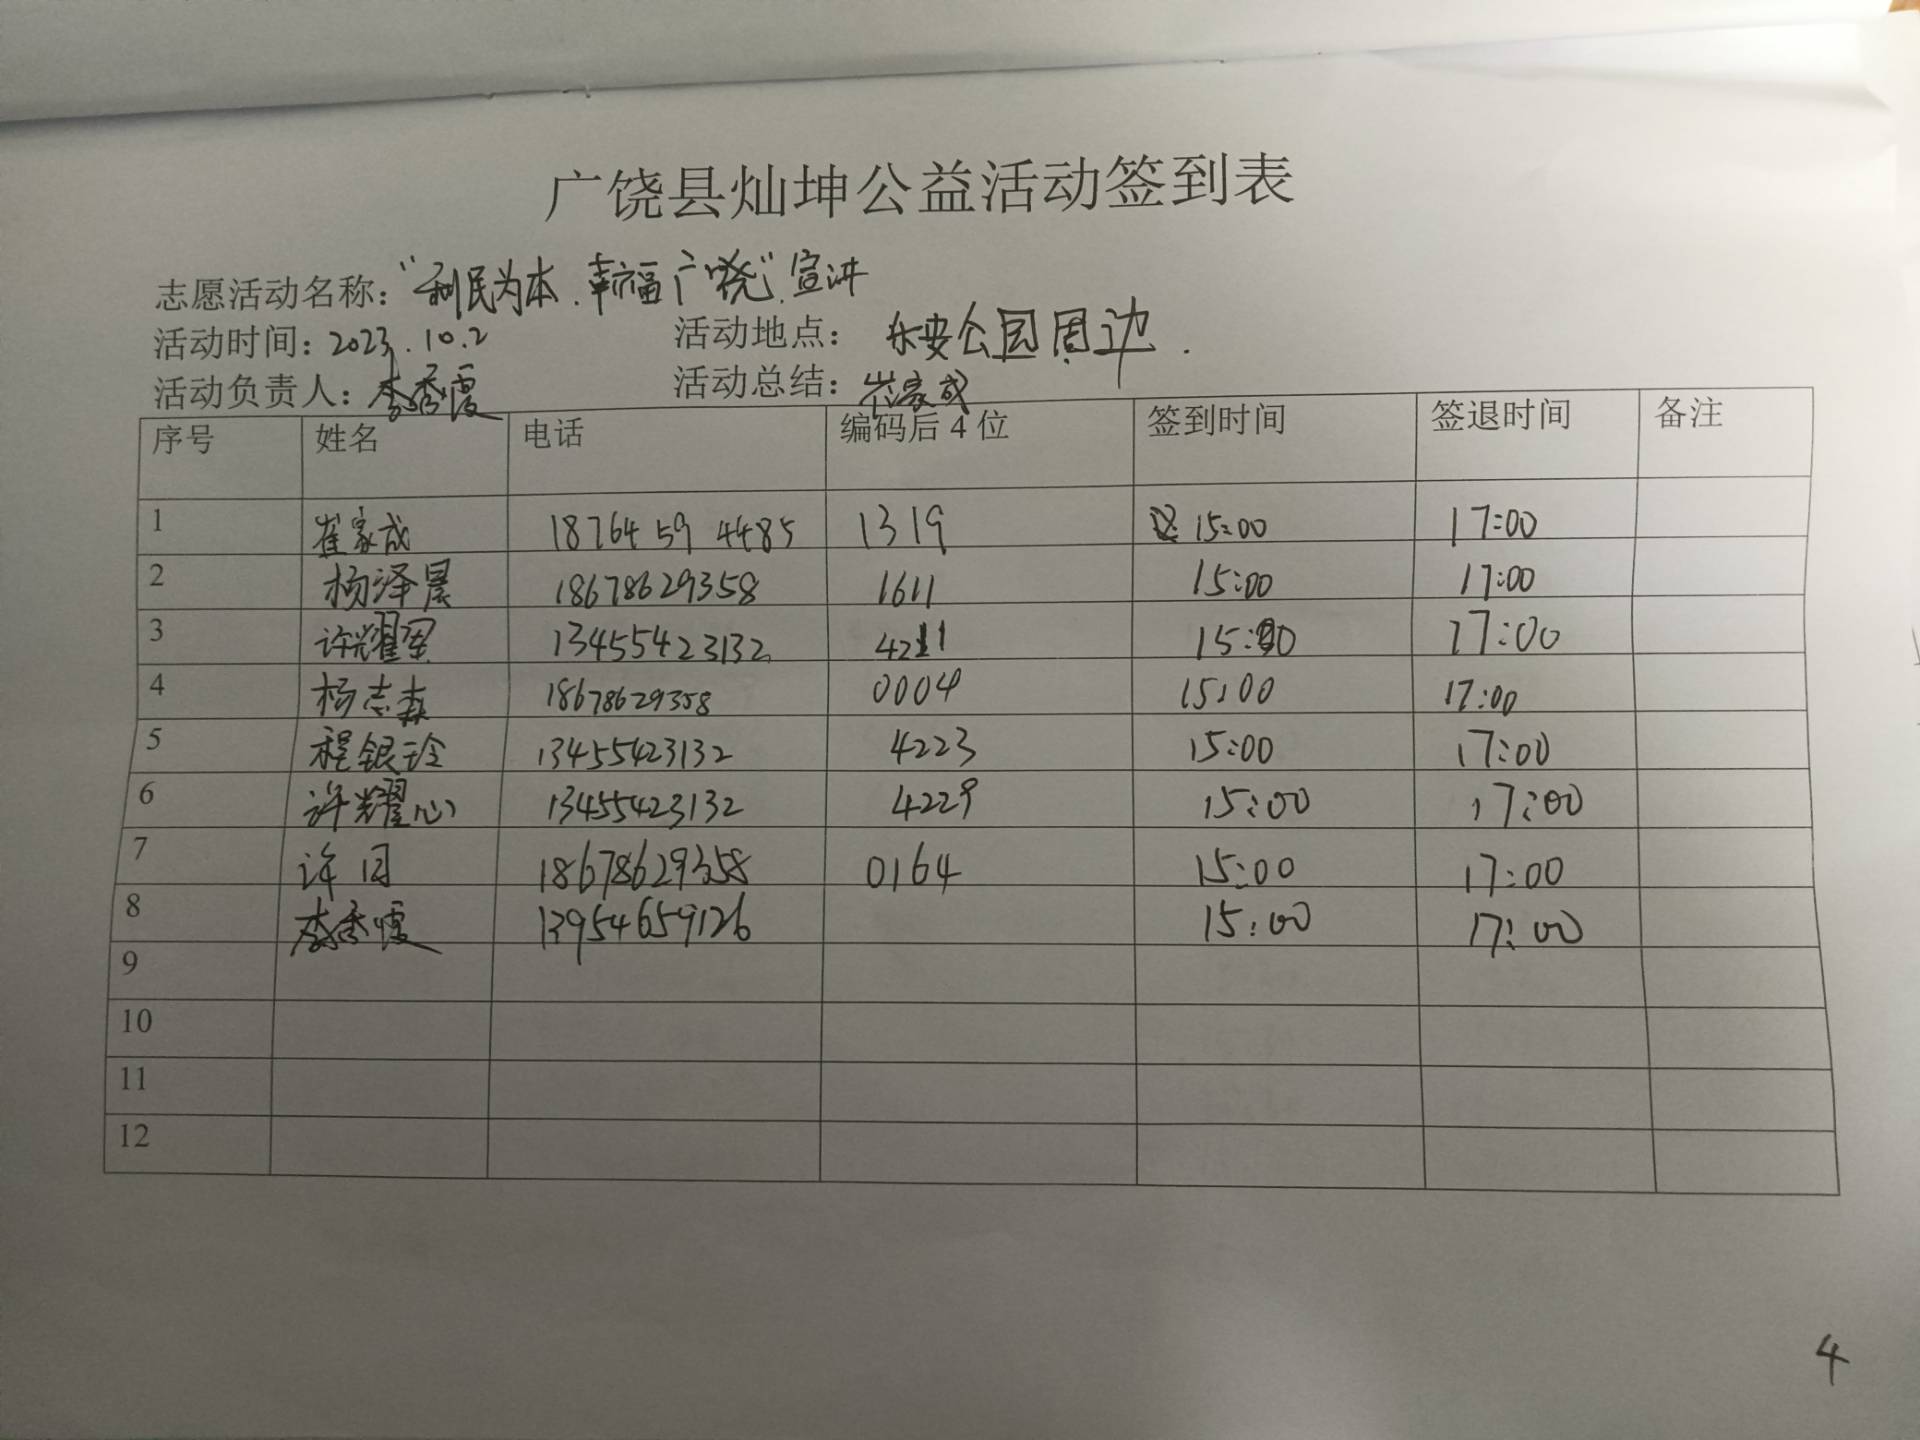 广饶县灿坤公益活动签到表
志愿活动名称：“利民为本、幸福广饶”宣讲
活动时间：2023.10.2 活动地点：乐安公园周边.
活动负责人：李秀霞 活动总结：崔家成
序号 姓名 电话 编码后4位 签到时间 签退时间 备注
1 崔家成 18764594485 1319 15:00 17:00
2 杨泽晨 18678629358 1611 15:00 17:00
3 许耀 13455423132 4211 15:00 17:00
4 杨志森 18678629358 0004 15:00 17:00
5 程银玲 13455423132 4223 15:00 17:00
6 许耀心 13455423132 4229 15:00 17:00
7 许同 18678629358 0164 15:00 17:00
8 李秀霞 13954659126 15:00 17:00
9
10
11
12
4